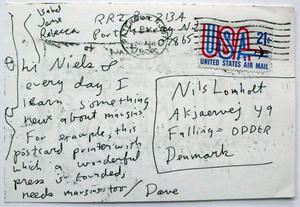 Isabel
Jane
Rebecca
RR2 Box 213A
Port Murray NJ
07865
USA 21¢
UNITED STATES AIR MAIL
hi Niels
every day I
learn something
new about margins.
For example, this
postcard printer with
which a wonderful
press is founded,
needs margins too
Dave
Nils Lomholt
Falling = ODDER
Denmark